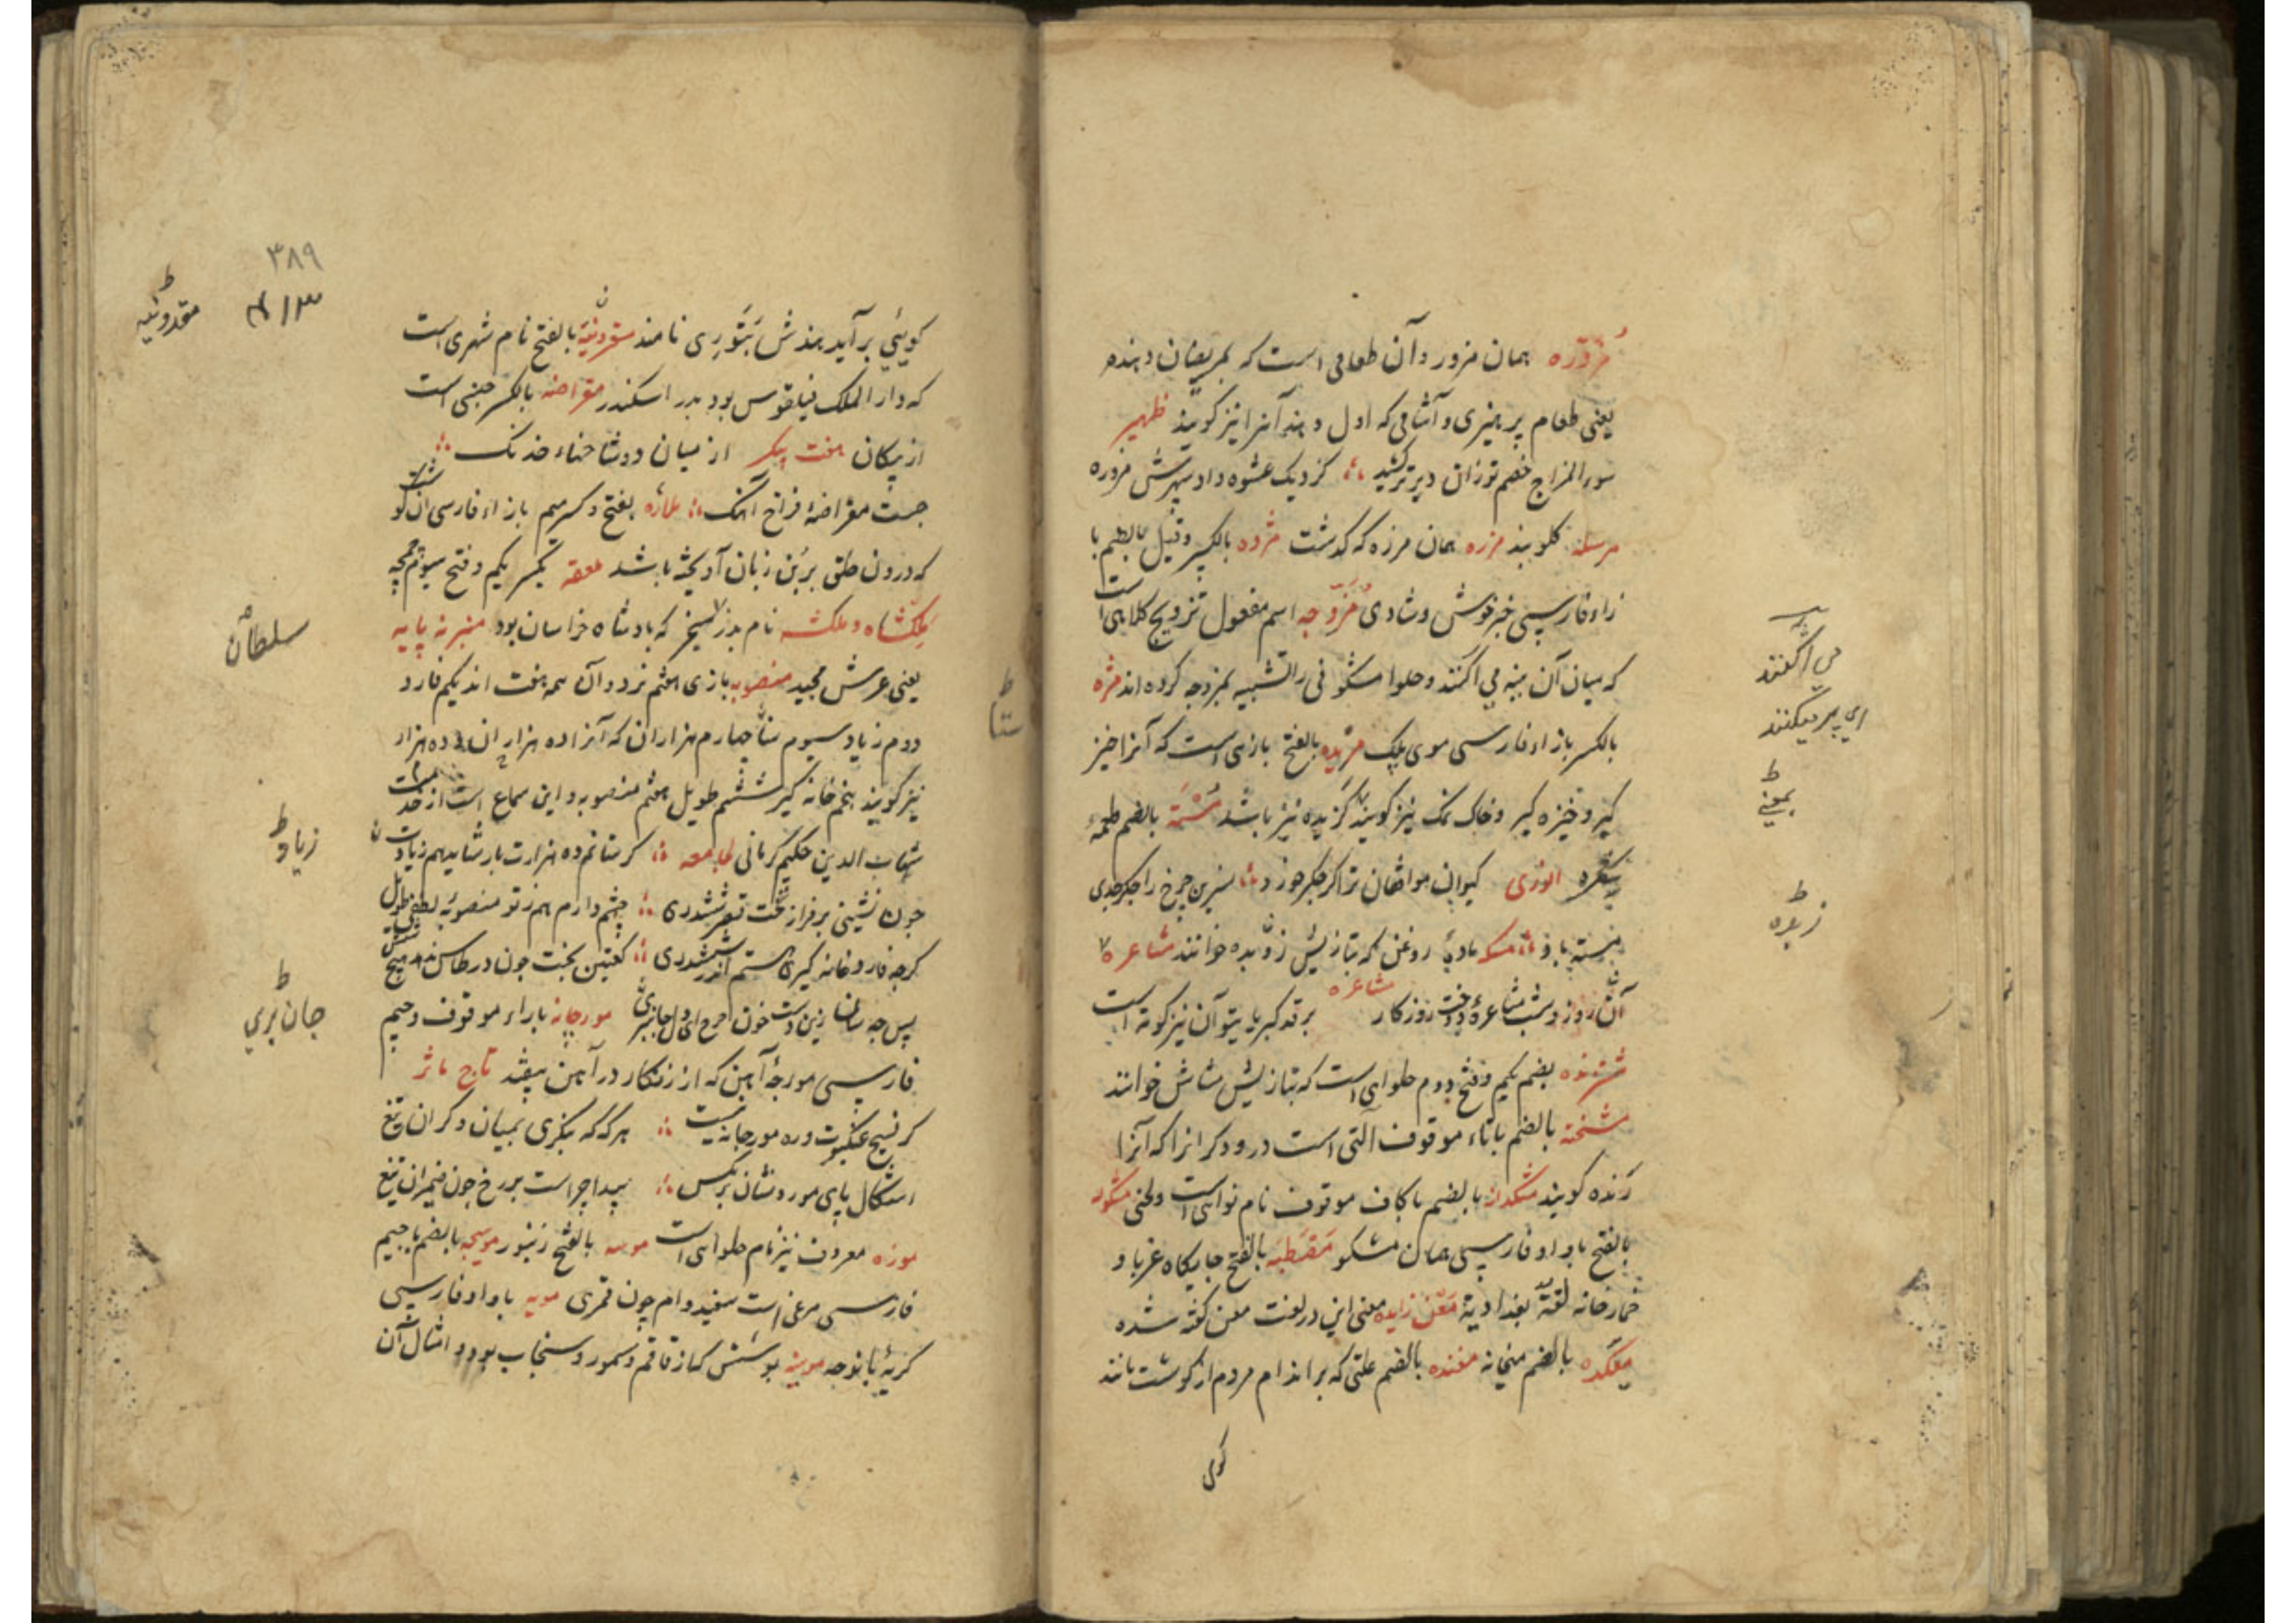 مزوره همان مزور و آن طعامی است که بمریضان دهند
یعنی طعام پرهیزی و آشامی که اول دهند آنرا نیز گویند ظهیر
سوء المزاج خصم تو زان دیرتر کشید کز دیک عشوه داد سپهرش مزوره
مرسله کلوبند مرزه همان مرزه که کذشت مژده بالکسر وقیل بالضم با
زاء فارسی خبر خوش و شادی مزوجه اسم مفعول تزویج کلاهی است
که میان آن پنبه می آکنند و حلوا مشکوفی را تشبیه بمزوجه کرده اند مژه
بالکسر با زاء فارسی موی پلک مزیده بالفتح بازی است که آنرا خیز
کیر و خیزه کیر و خاک نمک نیز گویند کزیده نیز باشد مسته بالضم طعمه
شکره انوری کیوان موافقان ترا کر جکر خورد نسرین چرخ را جکر جدی
مسته باذ مسکه مادیه روغن که بتازیش زبده خوانند مشاعره
آن روز و شب مشاعره وقت روزکار مشاعره بر قد کبریاء تو آن نیز کوته است
بضم یکم و فتح دوم حلوایی است که بتازیش مشاش خوانند
مشخته بالضم با تاء موقوف آلتی است درودکرانرا که آنرا
رنده کویند مشکدانه بالضم با کاف موقوف نام نوایی است و لحنی مشکوله
بالفتح با واو فارسی همان مشکو مصطبه بالفتح جایگاه غربا و
خمارخانه لغة بغدادیة معن زایده معنی این در لغت معن کفته شده
میکده بالضم میخانه مغنده بالضم علتی که بر اندام مردم از کوشت مانند
کوی
می آکنند
ای پر میکنند
بمعنی
زبده
۳۸۹
مقدونیه
کویی بر آید هندش بتوری نامند مقدونیه بالفتح نام شهری است
که دار الملک فیلقوس بود پدر اسکندر مقراضه بالکسر جنسی است
از پیکان هفت پیکر از میان دو شاخهاء خدنک
جست مقراضه فراخ آهنک ملازه بفتح و کسر میم با زاء فارسی آن گوشت
که درون حلق بر بن زبان آویخته باشد ملعقه بکسر یکم و فتح سیوم چمچه
ملکشاه و ملکشه نام پدر سنجر که پادشاه خراسان بود منبر نه پایه
یعنی عرش مجید منصوبه بازی هفتم نرد و آن همه هفت اند یکم فارد
دوم زیاد سیوم ستا چهارم هزاران که آنرا ده هزاران و ده هزار
نیز کویند پنجم خانه کیر ششم طویل هفتم منصوبه و این سماع است از خدمت
شهاب الدین حکیم کرمانی لجامعه کر ستانم ده هزارت بار شاید هم زیاد
چون نشینی بر فراز تخت نرد ششدری چشم دارم هم ز تو منصوبه لطف طویل
کرچه فارد و خانه کیری هستم اندر ششدری کعبتین بخت چون در طاس
پس چه سان زین دست خون آرم ای دل جانبری مورچانه با راء موقوف و جیم
فارسی مورچه آهن که از زنکار در آهن بیفتد تاج ماثر
کر نسیج عنکبوت و ره مورچانه نیست هر که که بنکری بمیان و کران تیغ
اشکال پای مور و نشان پر مکس پیدا چراست بر رخ چون ضیمران تیغ
موزه معروف نیز نام حلوایی است موسه بالفتح زنبور موسیجه بالضم با جیم
فارسی مرغی است سفید وام چون قمری مویه با واو فارسی
کریه با نوحه موینه پوشش که از قاقم و سمور و سنجاب بود و امثال آن
سلطان
ستا
زیاد
جان بری